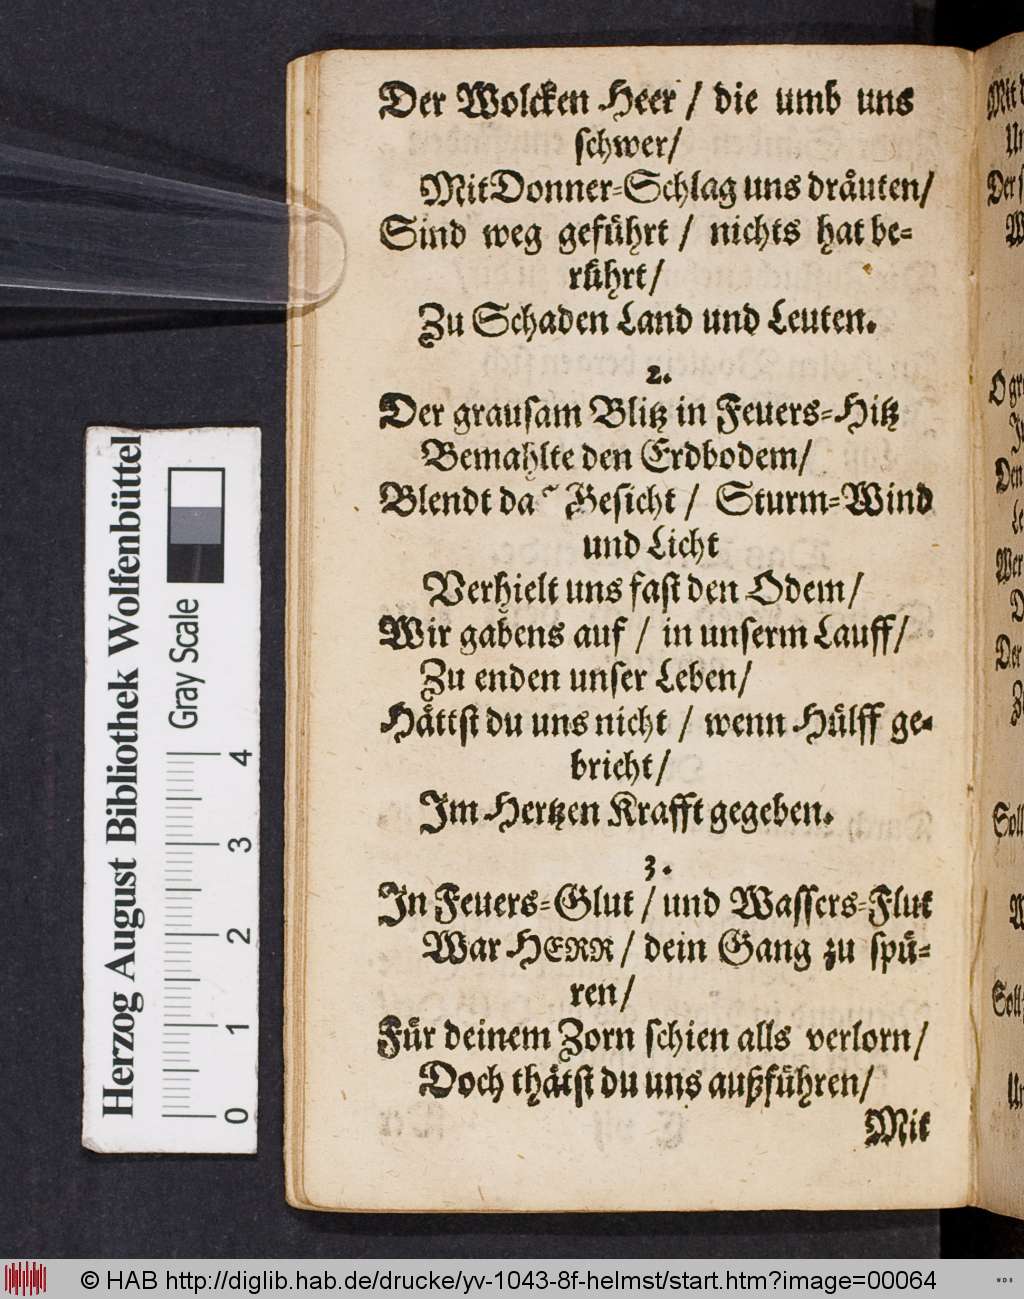 Der Wolcken Heer / die umb uns
schwer/
Mit Donner-Schlag uns dräuten/
Sind weg geführt / nichts hat be-
rührt/
Zu Schaden Land und Leuten.
2.
Der grausam Blitz in Feuers-Hitz
Bemahlte den Erdbodem/
Blendt da Gesicht / Sturm-Wind
und Licht
Verhielt uns fast den Odem/
Wir gabens auf / in unserm Lauff/
Zu enden unser Leben/
Hättst du uns nicht / wenn Hülff ge-
bricht/
Im Hertzen Krafft gegeben.
3.
In Feuers-Glut / und Wassers-Flut
War HERR / dein Gang zu spü-
ren/
Für deinem Zorn schien alls verlorn/
Doch thätst du uns außführen/
Mit
Herzog August Bibliothek Wolfenbüttel
Gray Scale
0 1 2 3 4
© HAB http://diglib.hab.de/drucke/yv-1043-8f-helmst/start.htm?image=00064